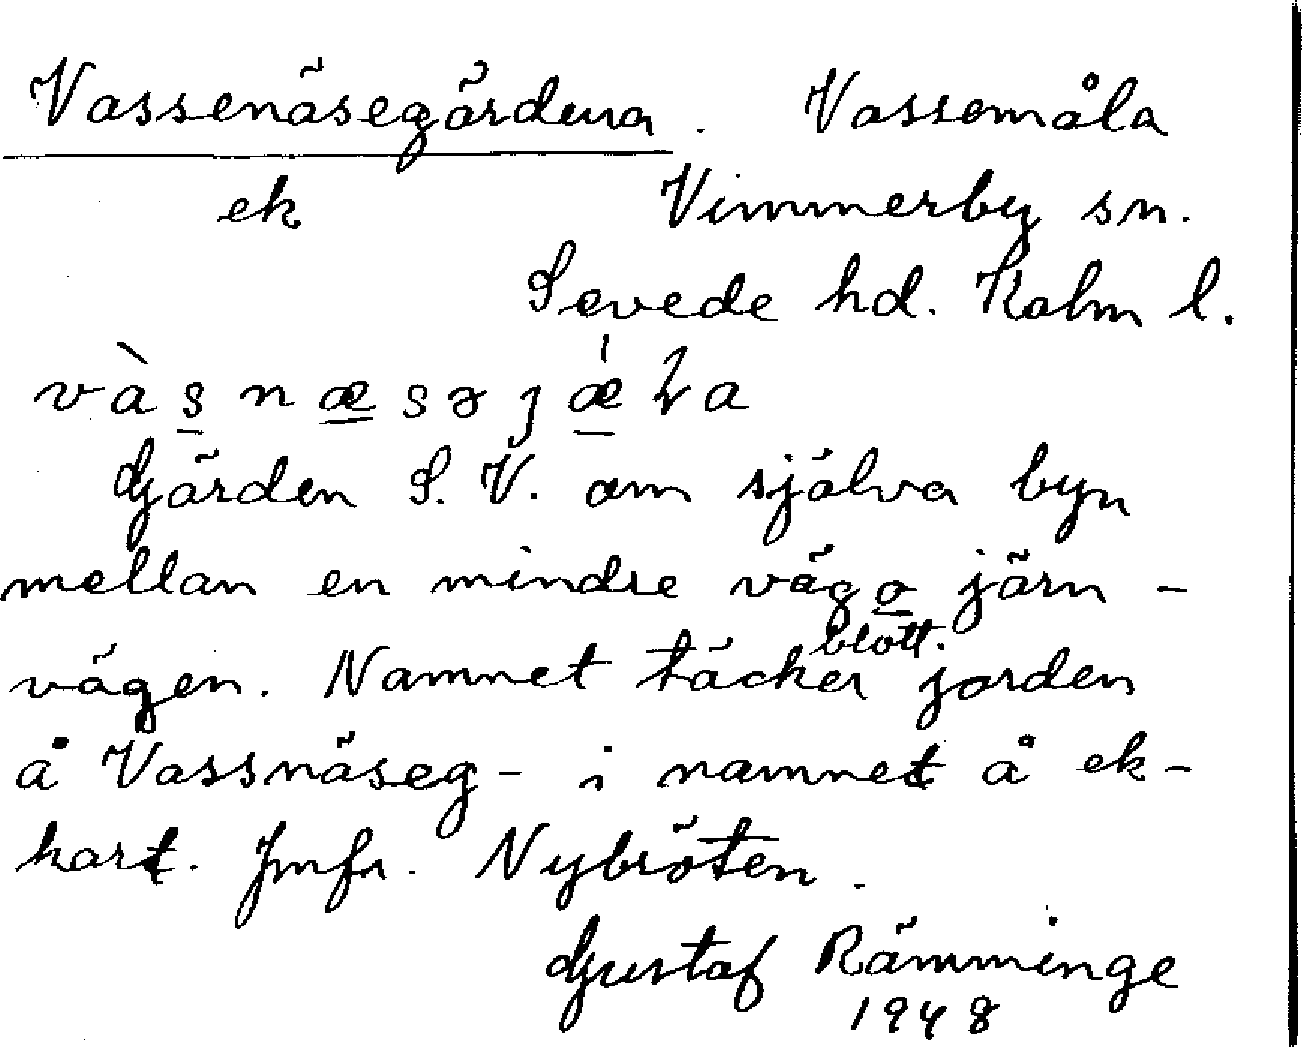 Vassenäsegärdena. Vassemåla
ek Vimmerby sn.
Sevede hd. Kalm l.
Gärden S.V. om själva byn
mellan en mindre väg o järn-
vägen. Namnet täcker blott. jorden
å Vassnäseg- i namnet å ek-
kart. Jmfr. Nybröten.
Gustaf Rämminge
1948